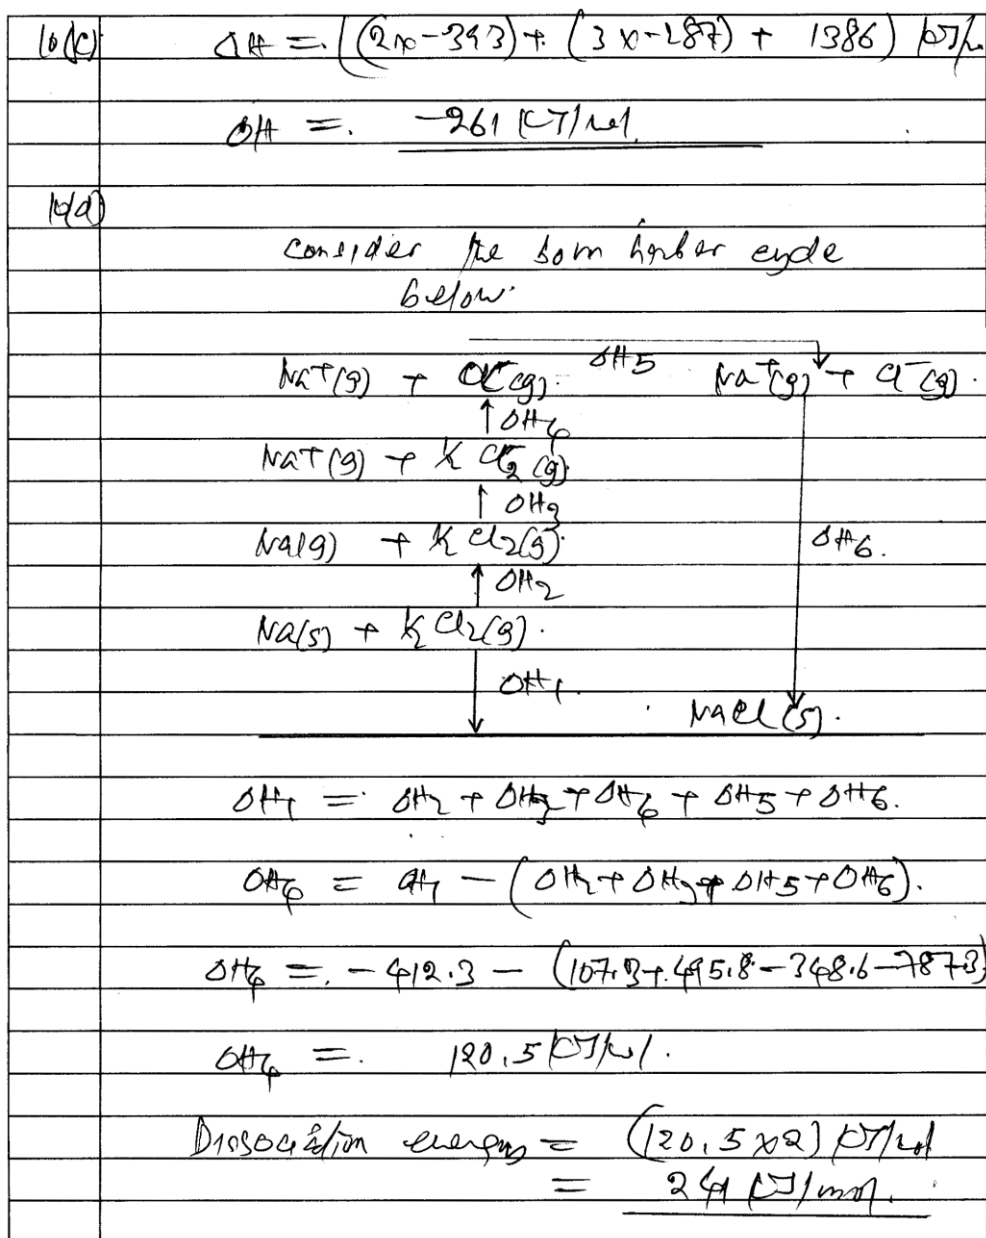 10(c) ΔH = ((2x-393) + (3x-287) + 1386) kJ/
ΔH = -261 kJ/mol
10(d)
consider the born haber cycle
below.
Na⁺(g) + Cl(g) ΔH5 Na⁺(g) + Cl⁻(g).
↑ΔH4
Na⁺(g) + ½ Cl2(g)
↑ ΔH3
Na(g) + ½ Cl2(g) ΔH6.
↑ ΔH2
Na(s) + ½ Cl2(g).
ΔH1.
NaCl(s).
ΔH1 = ΔH2 + ΔH3 + ΔH4 + ΔH5 + ΔH6.
ΔH4 = ΔH1 - (ΔH2 + ΔH3 + ΔH5 + ΔH6).
ΔH4 = -412.3 - (107.3 + 495.8 - 348.6 - 787.3)
ΔH4 = 120.5 kJ/mol.
Dissociation energy = (120.5 x2) kJ/mol
= 241 kJ/mol.